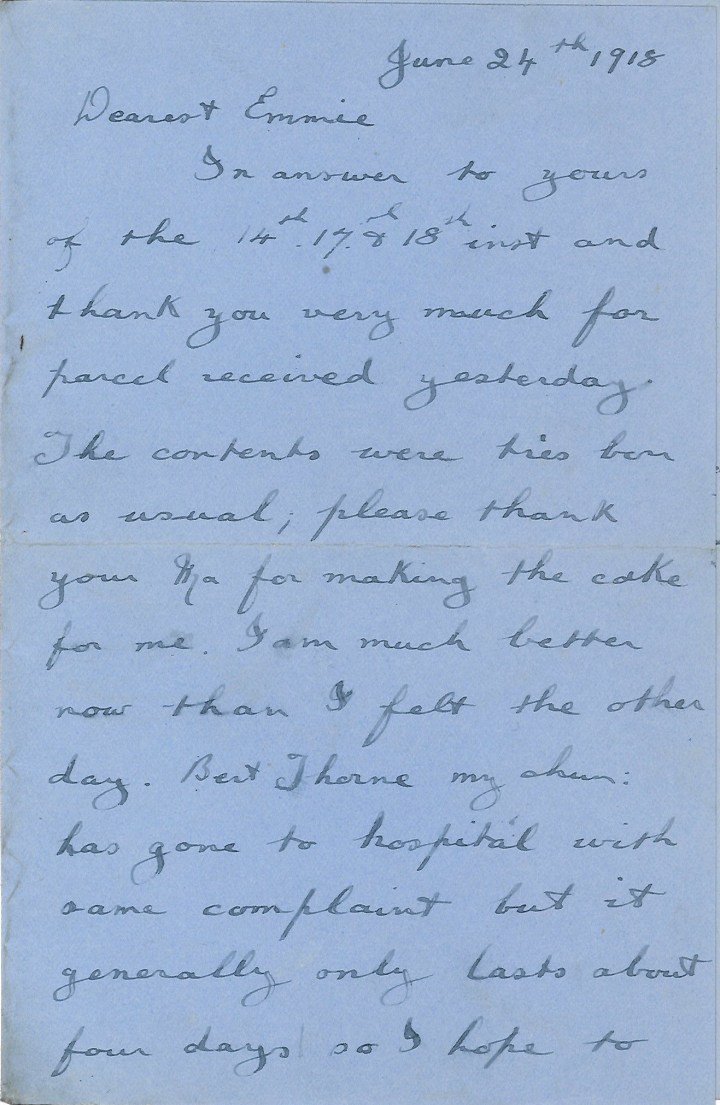 June 24th 1918
Dearest Emmie
In answer to yours
of the 14th. 17.th & 18th inst and
thank you very much for
parcel received yesterday.
The contents were très bon
as usual; please thank
your Ma for making the cake
for me. I am much better
now than I felt the other
day. Bert Thorne my chum:
has gone to hospital with
same complaint but it
generally only lasts about
four days so I hope to